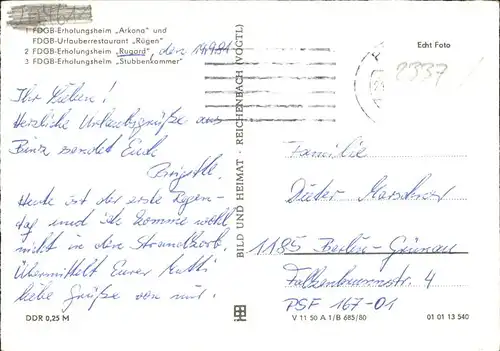 1 FDGB-Erholungsheim „Arkona" und
FDGB-Urlauberrestaurant „Rügen"
2 FDGB-Erholungsheim „Rugard", den 14.9.81
3 FDGB-Erholungsheim „Stubbenkammer"
Ihr Lieben!
Herzliche Urlaubsgrüße aus
Binz sendet Euch
Brigitte.
Heute ist der erste Regen-
tag und ich komme wohl
nicht in den Strandkorb.
Übermittelt Eurer Mutti
liebe Grüße von mir.
DDR 0,25 M
BILD UND HEIMAT · REICHENBACH (VOGTL)
Echt Foto
2337
Familie
Dieter Marschner
1185 Berlin-Grünau
Falkenbrunnstr. 4
PSF 167-01
V 11 50 A 1/B 685/80
01 01 13 540